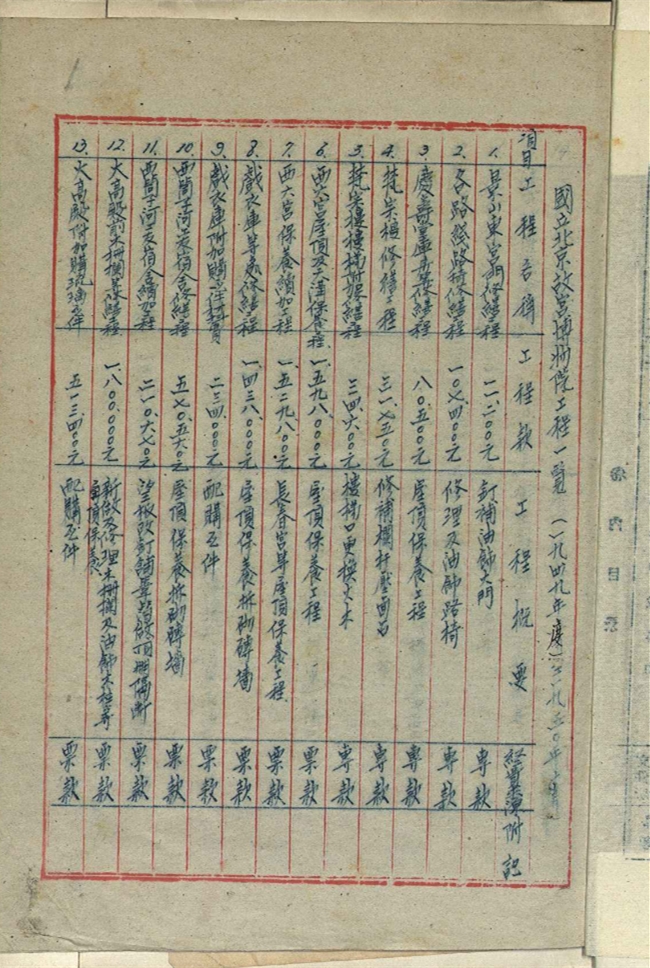 國立北京故宮博物院工程一覽 (一九四九年度)
項目 工程名稱 工程款 工程概要 經費來源 附記
1. 景山東宮門修繕工程 一一.二〇〇元 釘補油飾大門 專款
2. 各路綫路椅修繕工程 一〇七.四〇〇元 修理及油飾路椅 專款
3. 慶壽宮庫房修繕工程 八〇.五〇〇元 屋頂保養工程 專款
4. 梵宗樓修繕工程 三一.七五〇元 修補欄杆壓面石 專款
5. 梵宗樓樓梯附加修繕工程 三四.六〇〇元 樓梯口更換大木 專款
6. 西六宮屋頂及天溝保養工程 一.五九八.〇〇〇元 屋頂保養工程 票款
7. 西六宮保養續加工程 一.五二九.八〇〇元 長春宮等屋頂保養工程 票款
8. 戲衣庫等處修繕工程 一.四三八.〇〇〇元 屋頂保養拆砌磚墻 票款
9. 戲衣庫附加購瓦件材費 二三.四〇〇元 配購瓦件 票款
10. 西筒子河工友宿舍修繕工程 五七〇.五六〇元 屋頂保養拆砌磚墻 票款
11. 西筒子河工友宿舍續加工程 二一〇.六七〇元 望板改釘鋪葦箔做頂棚隔斷 票款
12. 大高殿前木柵欄等修繕工程 一.八〇〇.〇〇〇元 新做及修理木柵欄及油飾木柱等屋頂保養 票款
13. 大高殿附加購琉璃瓦件 五一三.四〇〇元 配購瓦件 票款